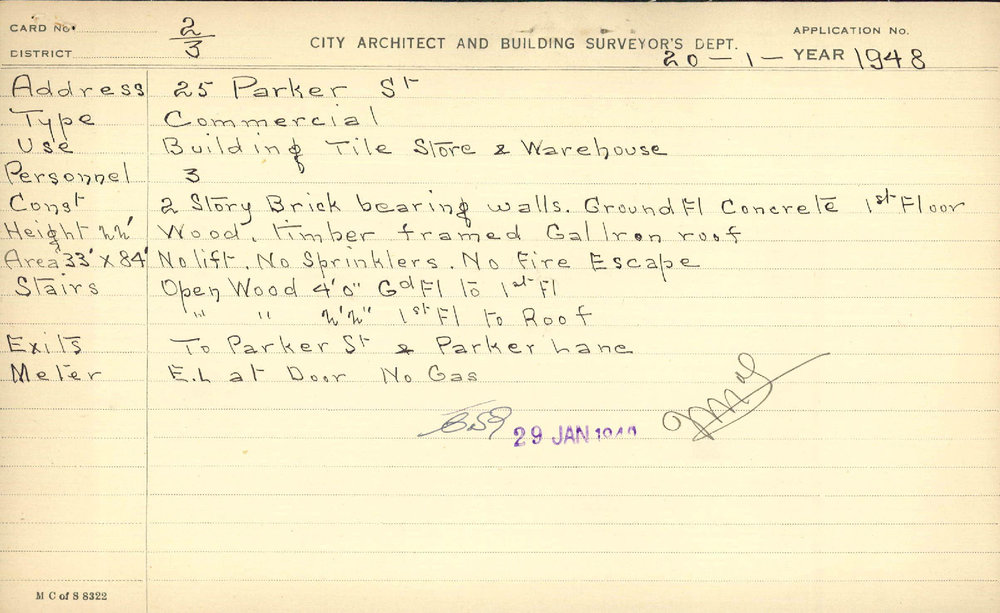 CARD No. 2
DISTRICT 3
CITY ARCHITECT AND BUILDING SURVEYOR'S DEPT.
APPLICATION No.
20-1- YEAR 1948
Address 25 Parker St
Type Commercial
Use Building Tile Store & Warehouse
Personnel 3
Const 2 Story Brick bearing walls. Ground Fl Concrete 1st Floor
Height 22' Wood, timber framed Gal Iron roof
Area 33' x 84' No lift. No Sprinklers. No Fire Escape
Stairs Open Wood 4'0" Gd Fl to 1st Fl
" " 2'2" 1st Fl to Roof
Exits To Parker St & Parker Lane
Meter E.L at Door No Gas
29 JAN
M C of S 8322